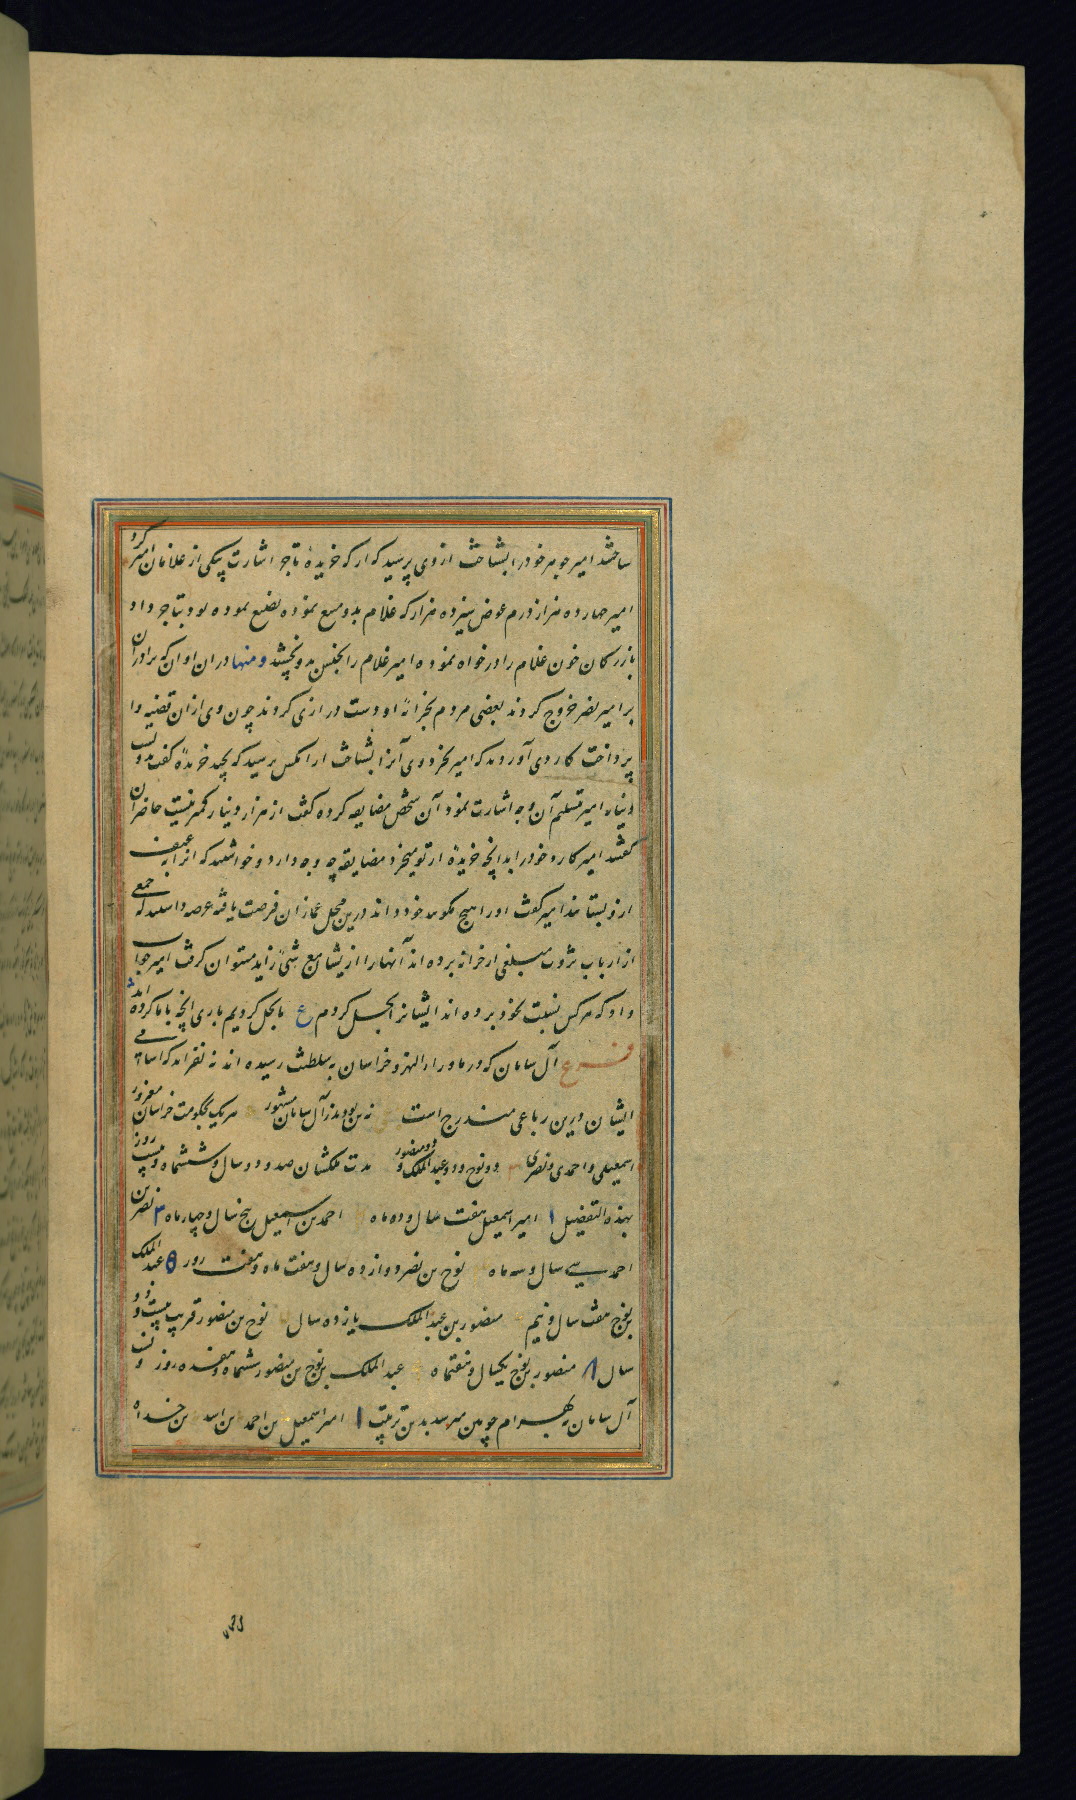 ساختند امیر جوهر خود را بشناخت از وی پرسید که از که خریدهٔ تاجر اشارت بیکی از غلامان امیر کرد
امیر چهارده هزار درم عوض سیزده هزار که غلام بدو بیع نموده بود بتاجر داد
بازرگان خون غلام را درخواه نموده امیر غلام را بجنس بدو بخشید ومنها دران اوان که برادران
بر امیر نصر خروج کردند بعضی مردم بخزانهٔ او دست درازی کردند چون وی ازان قضیه وا
پرداخت کاردی آوردند که امیر بخرد وی آنرا بشناخت از آنکس پرسید که بچند خریدهٔ گفت بدویست
دینار امیر بتسلیم آن وجه اشارت نمود آن شخص مضایقه کرده گفت از هزار دینار کمتر نیست حاضران
گفتند امیر کارد خود را بدانچه خریدهٔ از تو میخرد مضایقه چه وجه دارد و خواستند که انرا به عنف
ازو بستانند امیر گفت او را هیچ مگویید درین محل غمازان فرصت یافته عرضه داشتند که جمعی
از ارباب ثروت مبلغی از خزانه برده اند آنها را از یشان مع شیٔ زاید میتوان گرفت امیر جواب
داد که هر کس نسبت بخود برده اند ایشانرا بحل کردم ع ما بحل کردیم باری انچه با ما کرده اند
فرع آل سامان که در ماوراء النهر و خراسان به سلطنت رسیده اند نه نفراند که اسامی
ایشان درین رباعی مندرج است نه تن بودند ز آل سامان مشهور هر یک بحکومت خراسان مغرور
اسمعیلی و احمدی و نصری دو نوح و دو عبدالملک و دو منصور مدت ملکشان صد و دو سال و ششماه و بیست روز
بهذه التفصیل ۱ امیر اسمعیل هفت سال و ده ماه احمد بن اسمعیل پنج سال و چهار ماه ۳ نصر بن
احمد سی سال و سه ماه نوح بن نصر دوازده سال و هفت ماه و هفت روز ۵ عبد الملک
بن نوح هفت سال و نیم منصور بن عبد الملک یازده سال نوح بن منصور قریب بیست و دو
سال ۸ منصور بن نوح یکسال و هفتماه عبد الملک بن نوح بن منصور ششماه و هفده روز و نسب
آل سامان به بهرام چوبین میرسد بدین ترتیب ۱ امیر اسمعیل بن احمد بن اسد بن خداه